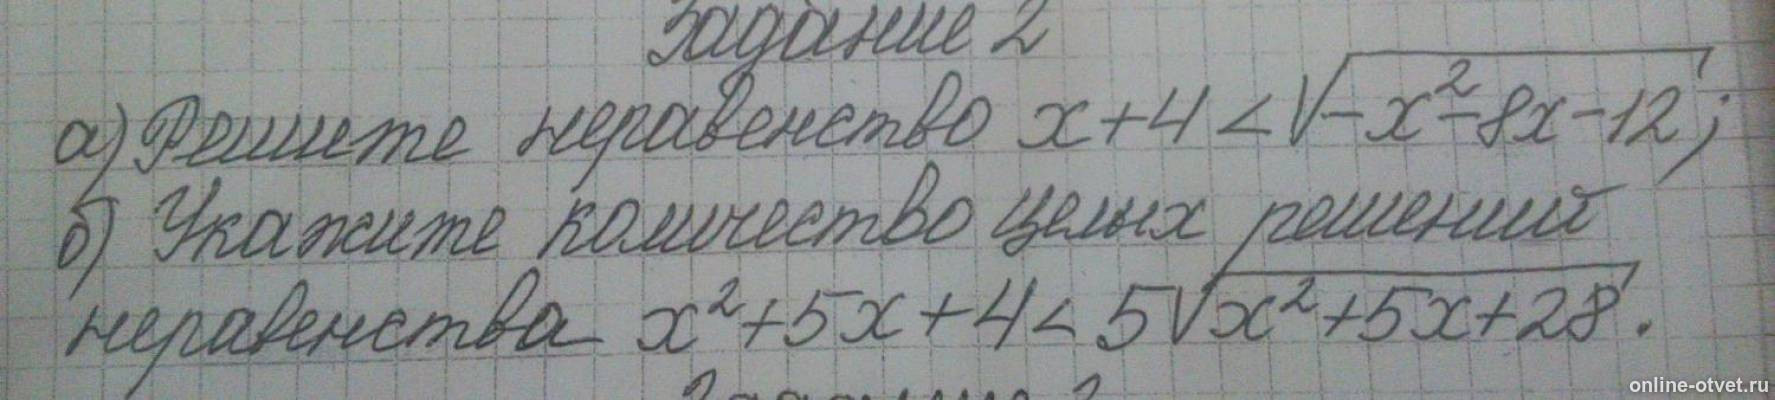 Задание 2
а) Решите неравенство x+4<√-x²-8x-12;
б) Укажите количество целых решений
неравенства x²+5x+4<5√x²+5x+28.
online-otvet.ru